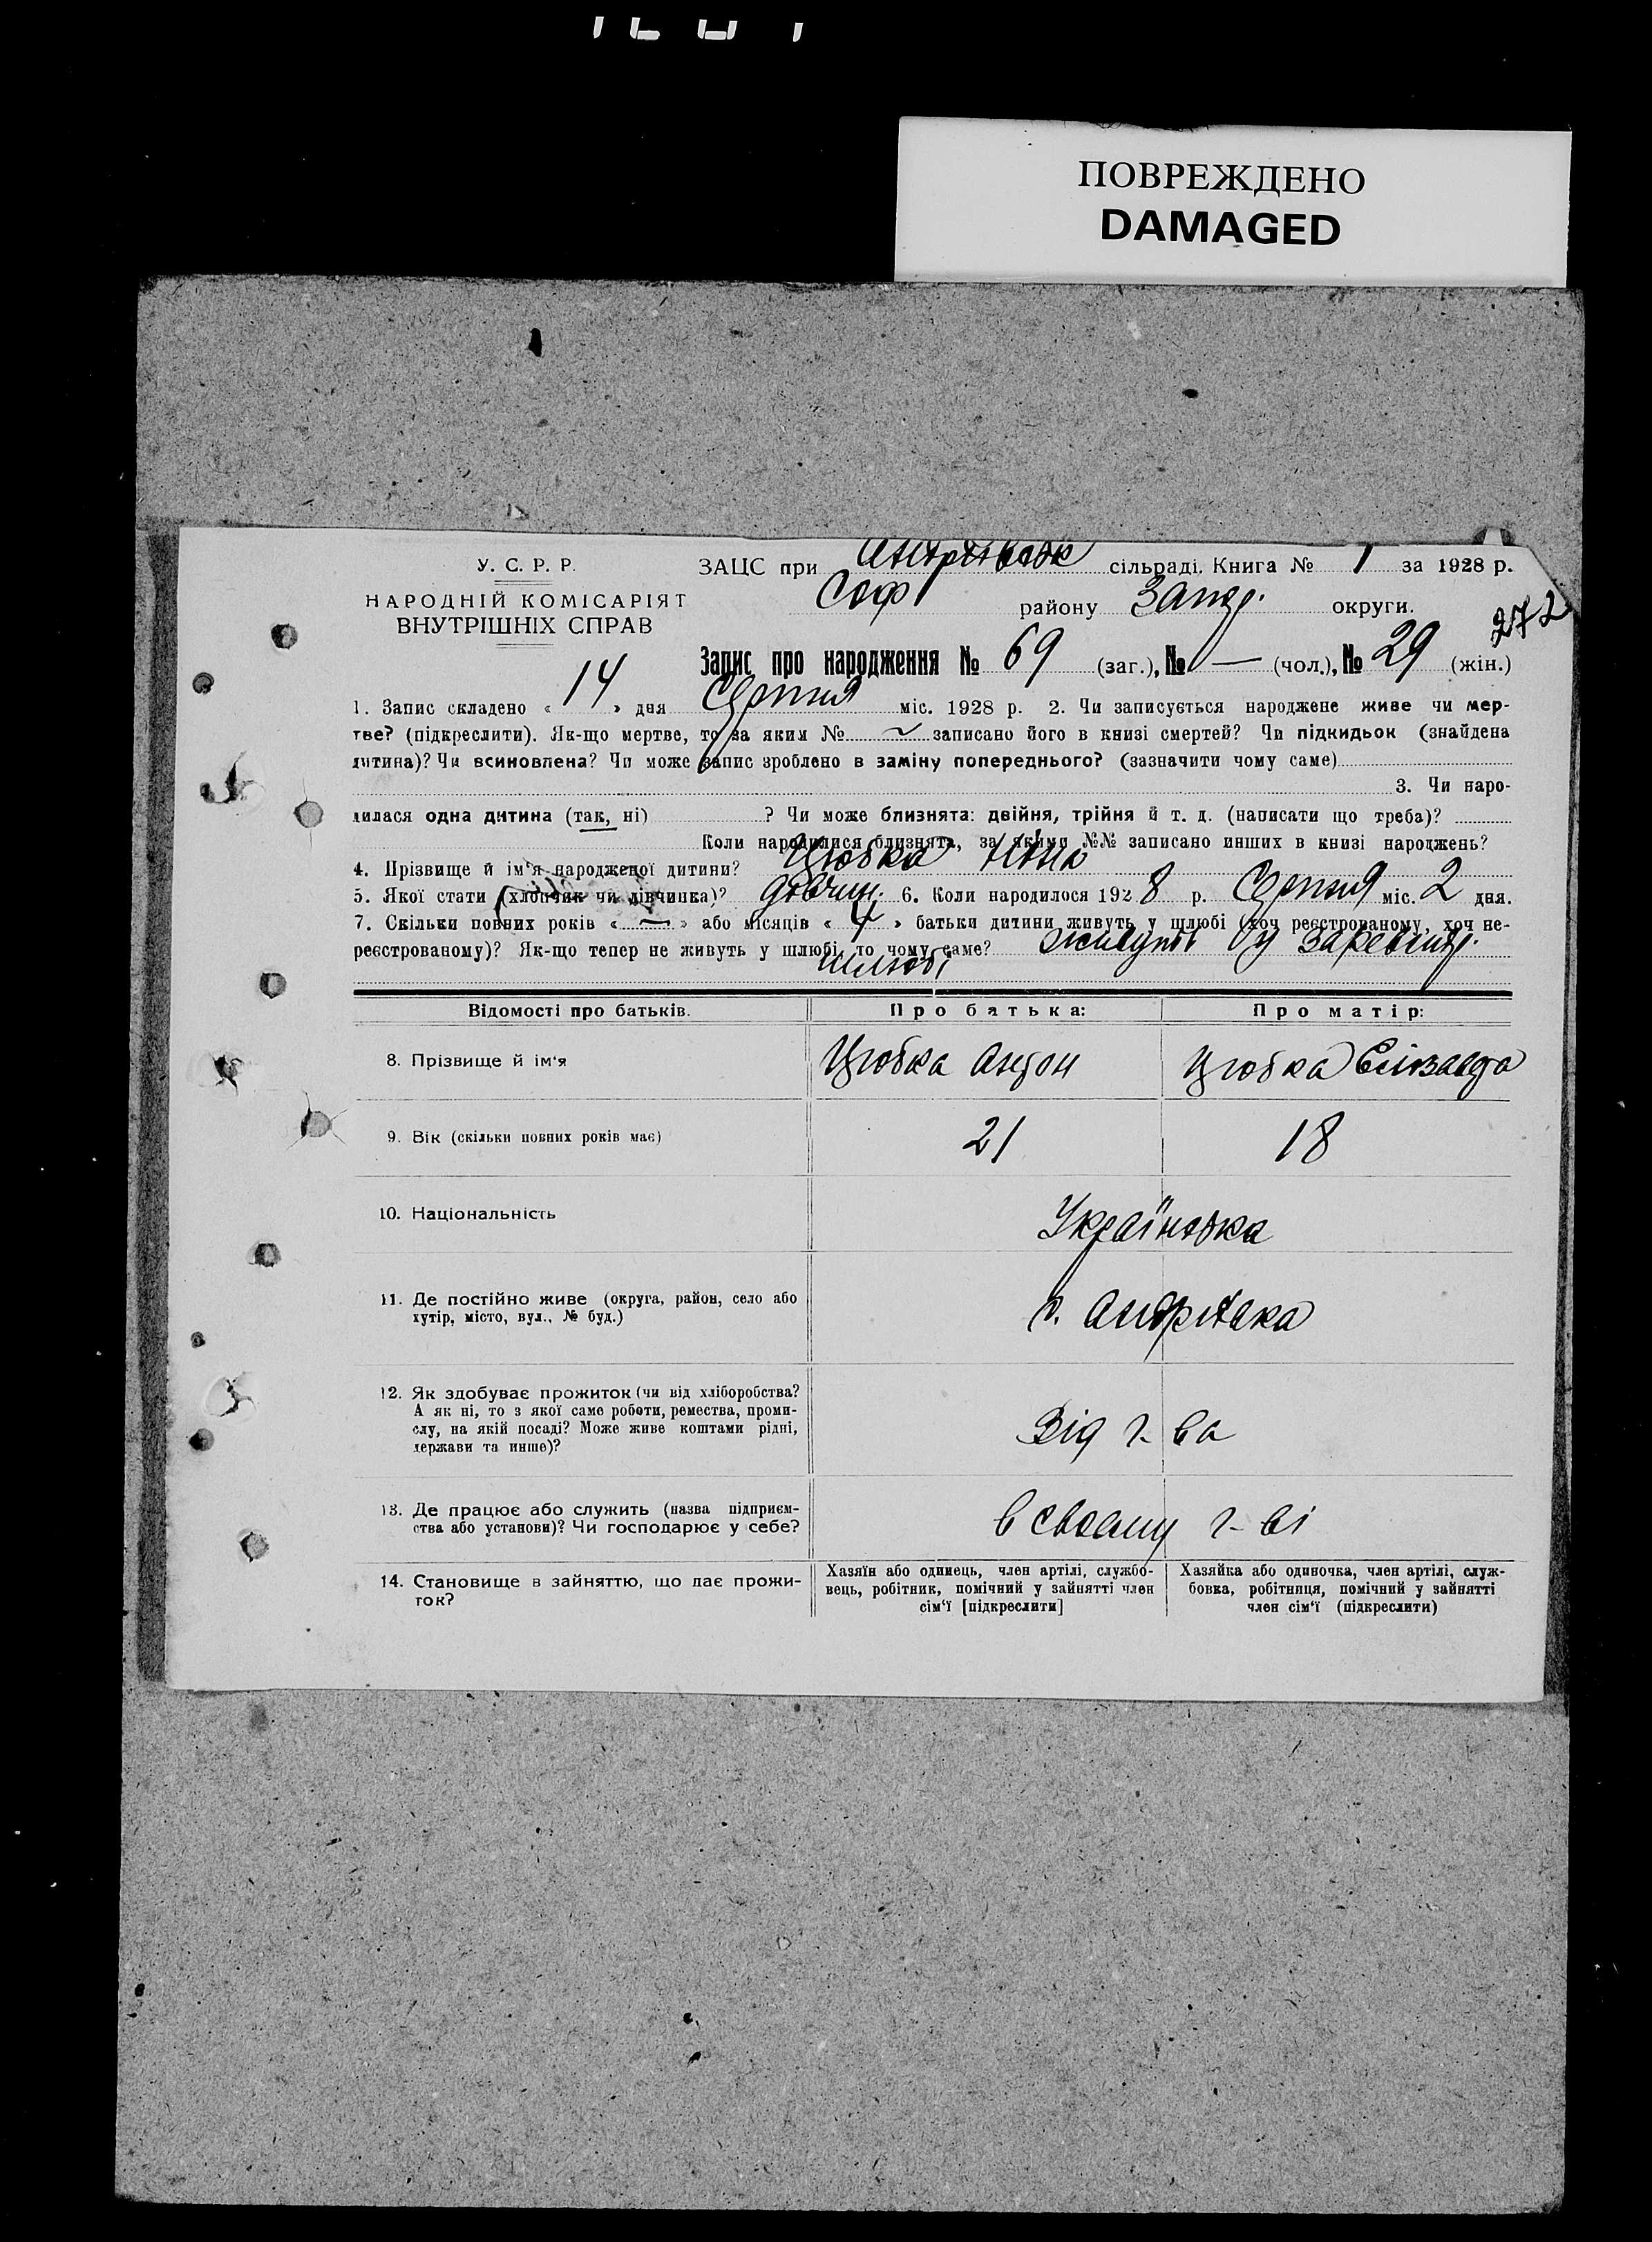 ПОВРЕЖДЕНО
DAMAGED
У. С. Р. Р.
НАРОДНІЙ КОМІСАРІЯТ
ВНУТРІШНІХ СПРАВ
ЗАЦС при Андріївськ сільраді. Книга № 1 за 1928 р.
Соф району Запор. округи.
272
Запис про народження № 69 (заг.), № — (чол.), № 29 (жін.)
1. Запис складено « 14 » дня Серпня міс. 1928 р. 2. Чи записується народжене живе чи мер-
тве? (підкреслити). Як-що мертве, то за яким № ~ записано його в книзі смертей? Чи підкидьок (знайдена
дитина)? Чи всиновлена? Чи може запис зроблено в заміну попереднього? (зазначити чому саме)
3. Чи наро-
дилася одна дитина (так, ні) ? Чи може близнята: двійня, трійня й т. д. (написати що треба)?
Коли народилися близнята, за якими №№ записано инших в книзі народжень?
4. Прізвище й ім'я народженої дитини? Цюбка Ніна
5. Якої стати (хлопчик чи дівчинка)? дівчин. 6. Коли народилося 1928 р. Серпня міс. 2 дня.
7. Скільки повних років « — » або місяців « 4 » батьки дитини живуть у шлюбі (хоч реєстрованому, хоч не-
реєстрованому)? Як-що тепер не живуть у шлюбі, то чому саме? живуть у
шлюбі
Відомості про батьків. Про батька: Про матір:
8. Прізвище й ім'я Цюбка Антон Цюбка Єлізавета
9. Вік (скільки повних років має) 21 18
10. Національність Українська
11. Де постійно живе (округа, район, село або
хутір, місто, вул., № буд.) с. Андріївка
12. Як здобуває прожиток (чи від хліборобства?
А як ні, то з якої саме роботи, ремества, проми-
слу, на якій посаді? Може живе коштами рідні,
держави та инше)? Від г-ва
13. Де працює або служить (назва підприєм-
ства або установи)? Чи господарює у себе? в своєму г-ві
14. Становище в зайняттю, що дає прожи-
ток?
Хазяїн або одинець, член артілі, службо-
вець, робітник, помічний у зайнятті член
сім'ї [підкреслити]
Хазяйка або одиночка, член артілі, служ-
бовка, робітниця, помічний у зайнятті
член сім'ї (підкреслити)